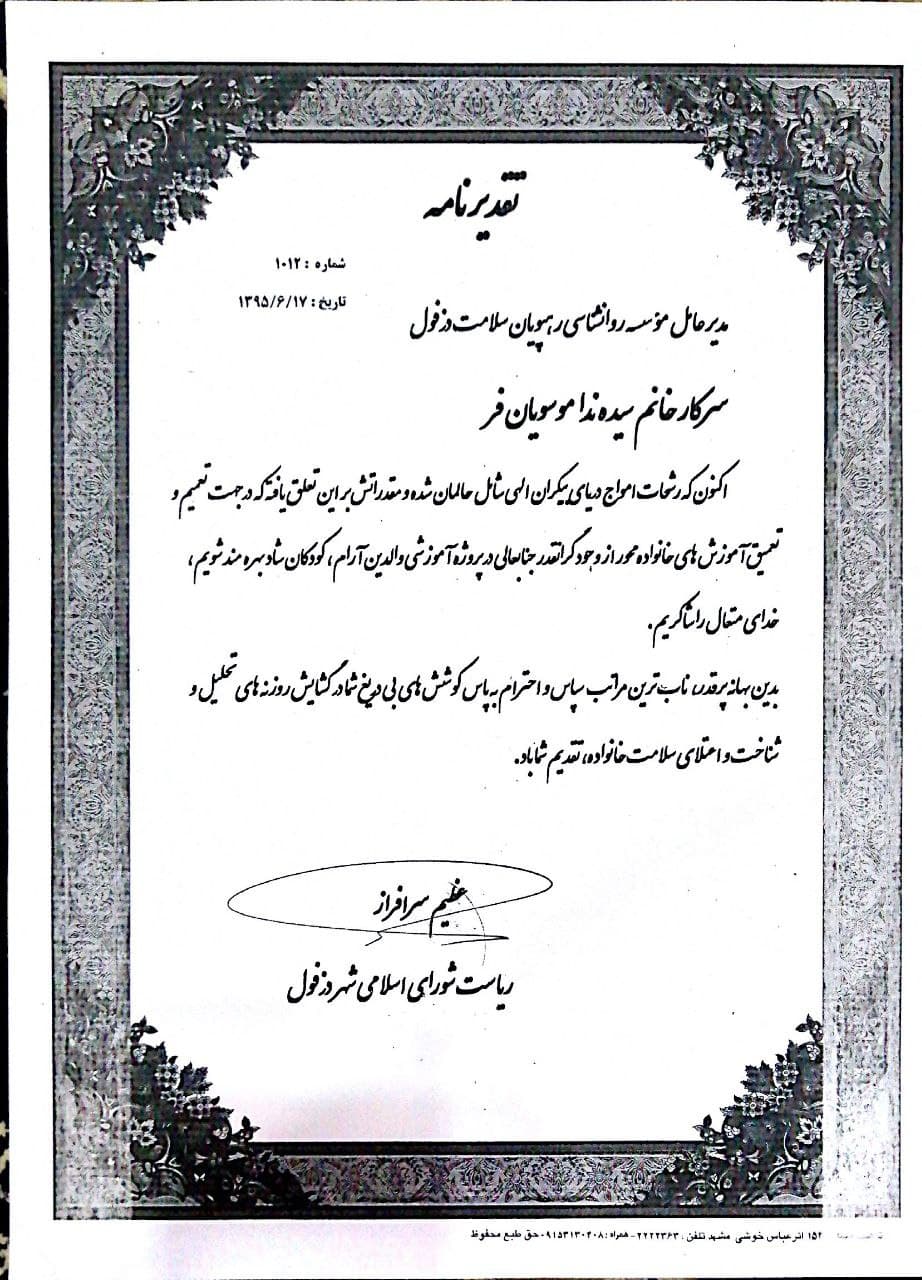 تقدیرنامه
شماره : ۱۰۱۲
تاریخ : ۱۳۹۵/۶/۱۷
مدیرعامل مؤسسه روانشناسی رهپویان سلامت دزفول
سرکار خانم سیده ندا موسویان فر
اکنون که رشحات امواج دریای بیکران الهی شامل عالمان شده و مقدراتش بر این تعلق یافته که در جهت تعمیم و
تعمیق آموزش های خانواده محور از وجود گرانقدر جنابعالی در پروژه آموزشی والدین آرام، کودکان شاد بهره مند شویم،
خدای متعال را شاکریم.
بدین بهانه پرقدر، ناب ترین مراتب سپاس و احترام به پاس کوشش های بی دریغ شما در گشایش روزنه های تحلیل و
شناخت و اعتلای سلامت خانواده، تقدیم شما باد.
عظیم سرافراز
ریاست شورای اسلامی شهر دزفول
۱۵۲ اثر عباس خوشی مشهد تلفن : ۲۲۲۲۳۶۳ - همراه : ۰۹۱۵۳۱۳۰۴۰۸ حق طبع محفوظ